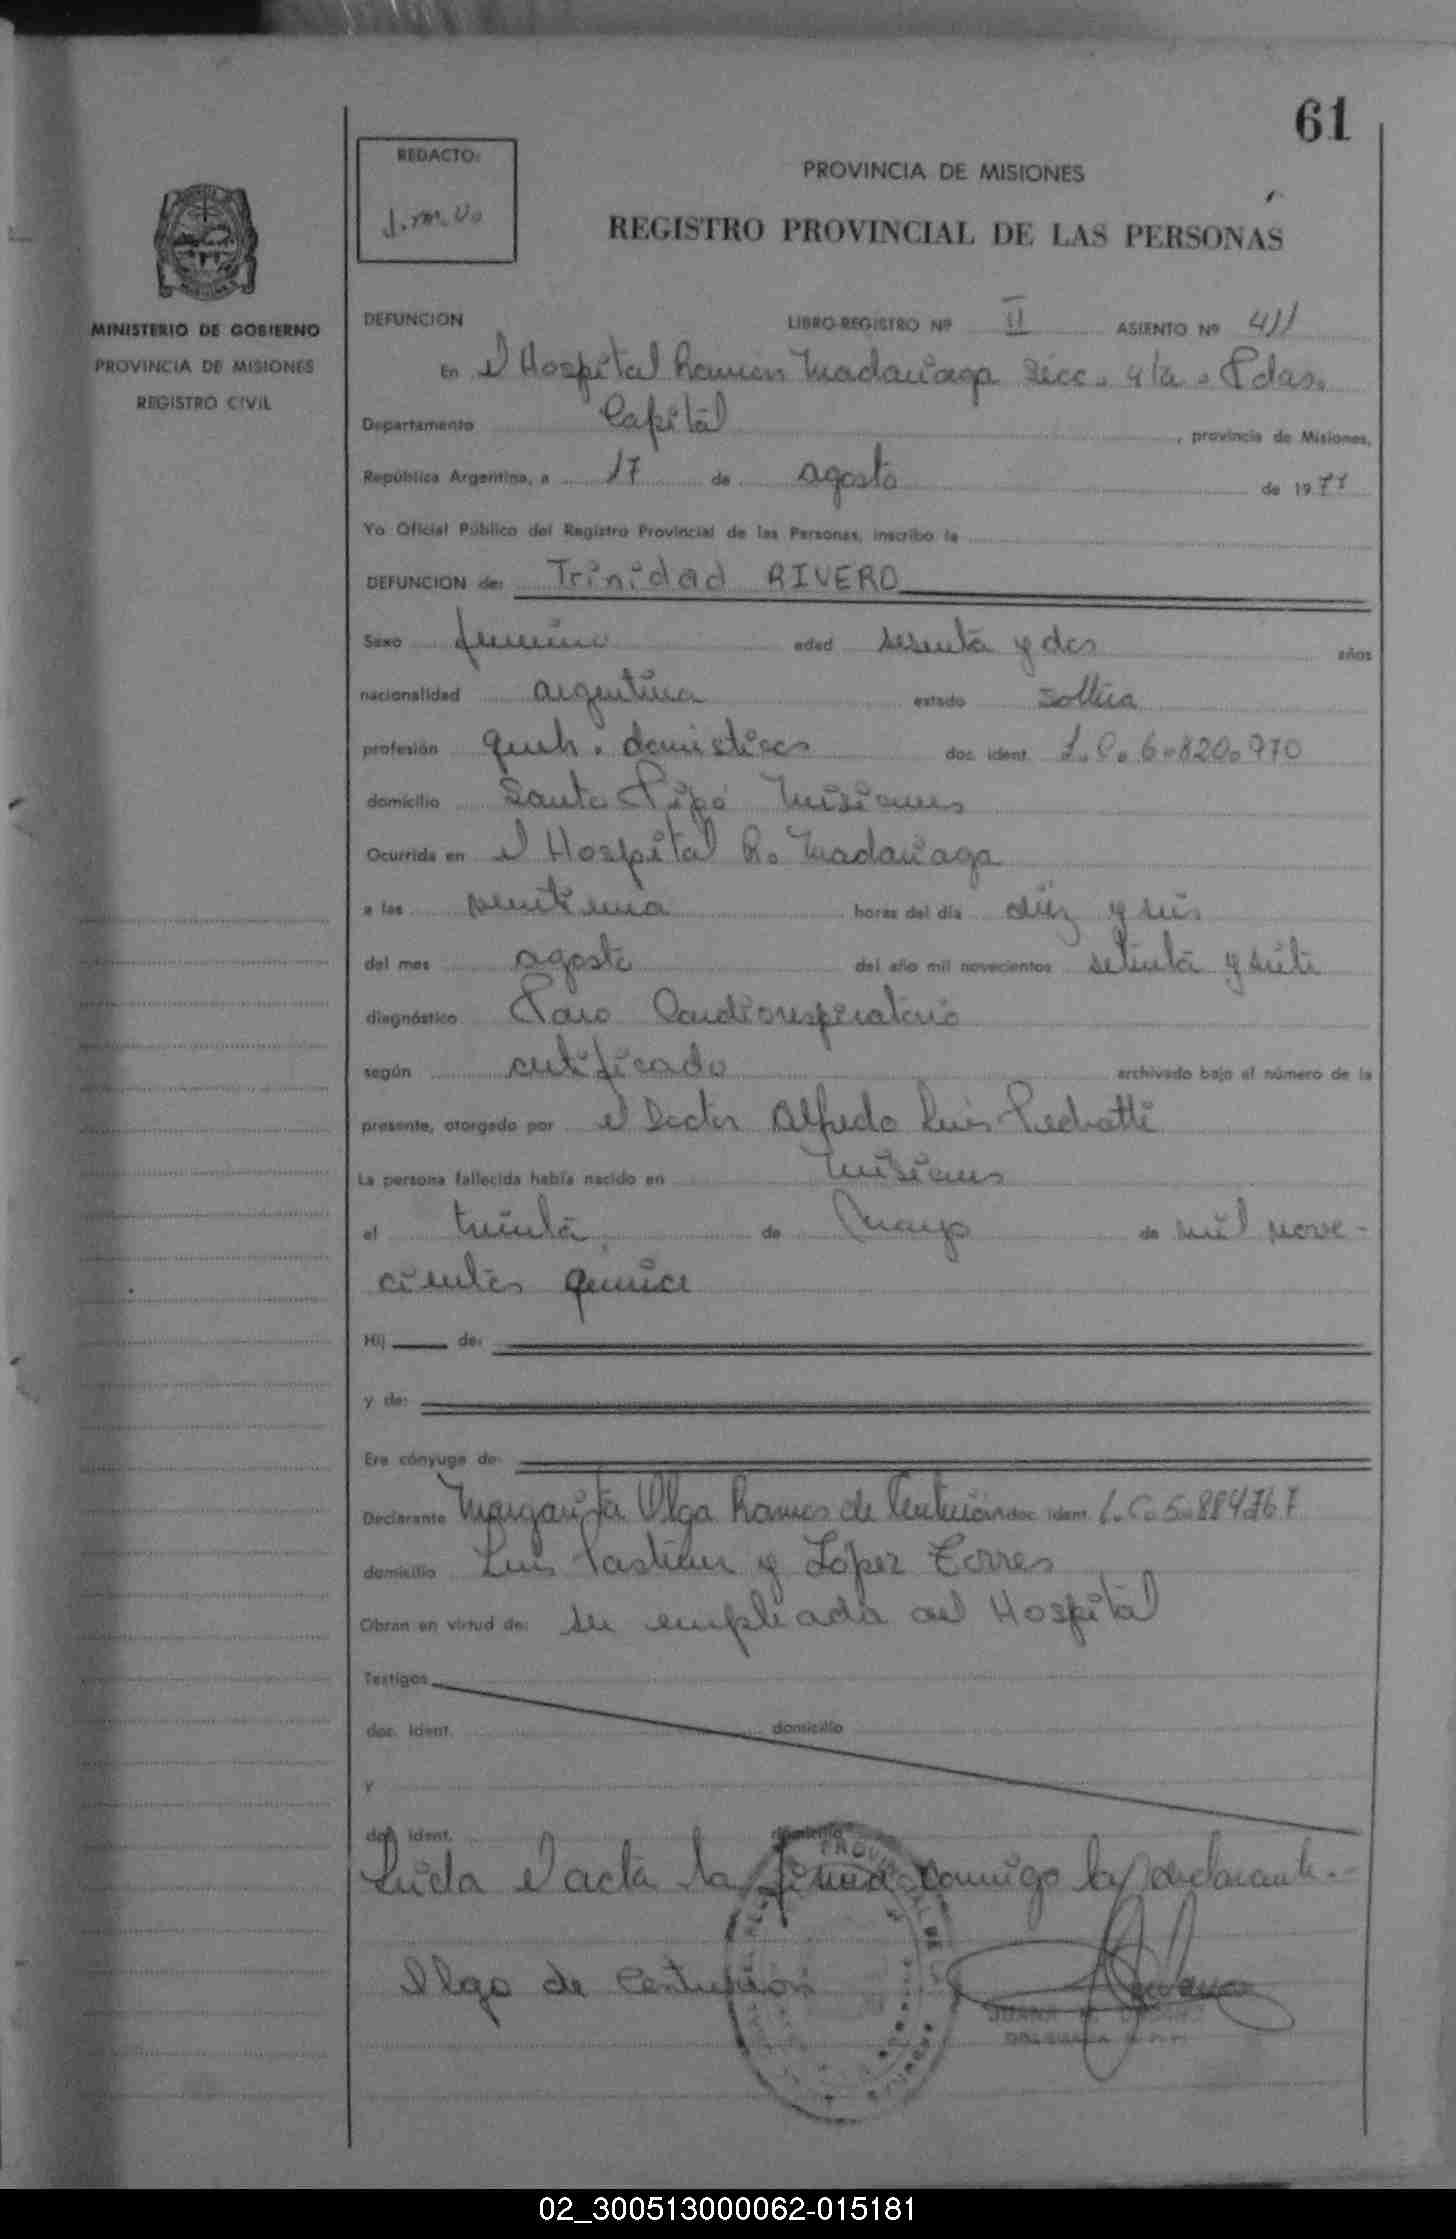 61
REDACTO:
J.m.Vo
PROVINCIA DE MISIONES
REGISTRO PROVINCIAL DE LAS PERSONAS
MINISTERIO DE GOBIERNO
PROVINCIA DE MISIONES
REGISTRO CIVIL
DEFUNCION LIBRO-REGISTRO Nº II ASIENTO Nº 411
En el Hospital Ramón Madariaga Secc. 4ta. Pdas.
Departamento Capital, provincia de Misiones,
República Argentina, a 17 de agosto de 1977
Yo Oficial Público del Registro Provincial de las Personas, inscribo la
DEFUNCION de: Trinidad RIVERO
Sexo femenino edad sesenta y dos años
nacionalidad argentina estado soltera
profesión queh. domésticos doc. ident. L.C. 6.820.970
domicilio Santo Pipó Misiones
Ocurrida en el Hospital R. Madariaga
a las veintiuna horas del día diez y seis
del mes agosto del año mil novecientos setenta y siete
diagnóstico Paro Cardiorespiratorio
según certificado archivado bajo el número de la
presente, otorgado por el Doctor Alfredo Luis Pedrotti
La persona fallecida había nacido en Misiones
el treinta de Mayo de mil nove-
cientos quince
Hij de:
y de:
Era cónyuge de:
Declarante Margarita Olga Ramos de Centurión doc. ident. L.C. 5.884.767
domicilio Luis Pasteur y López Torres
Obran en virtud de: su empleada del Hospital
Testigos
doc. ident. domicilio
y
doc. ident. domicilio
Leída el acta la firma conmigo la declarante.-
Olga de Centurion
JUANA M.
DELEGADA R.P.P.
02_300513000062-015181